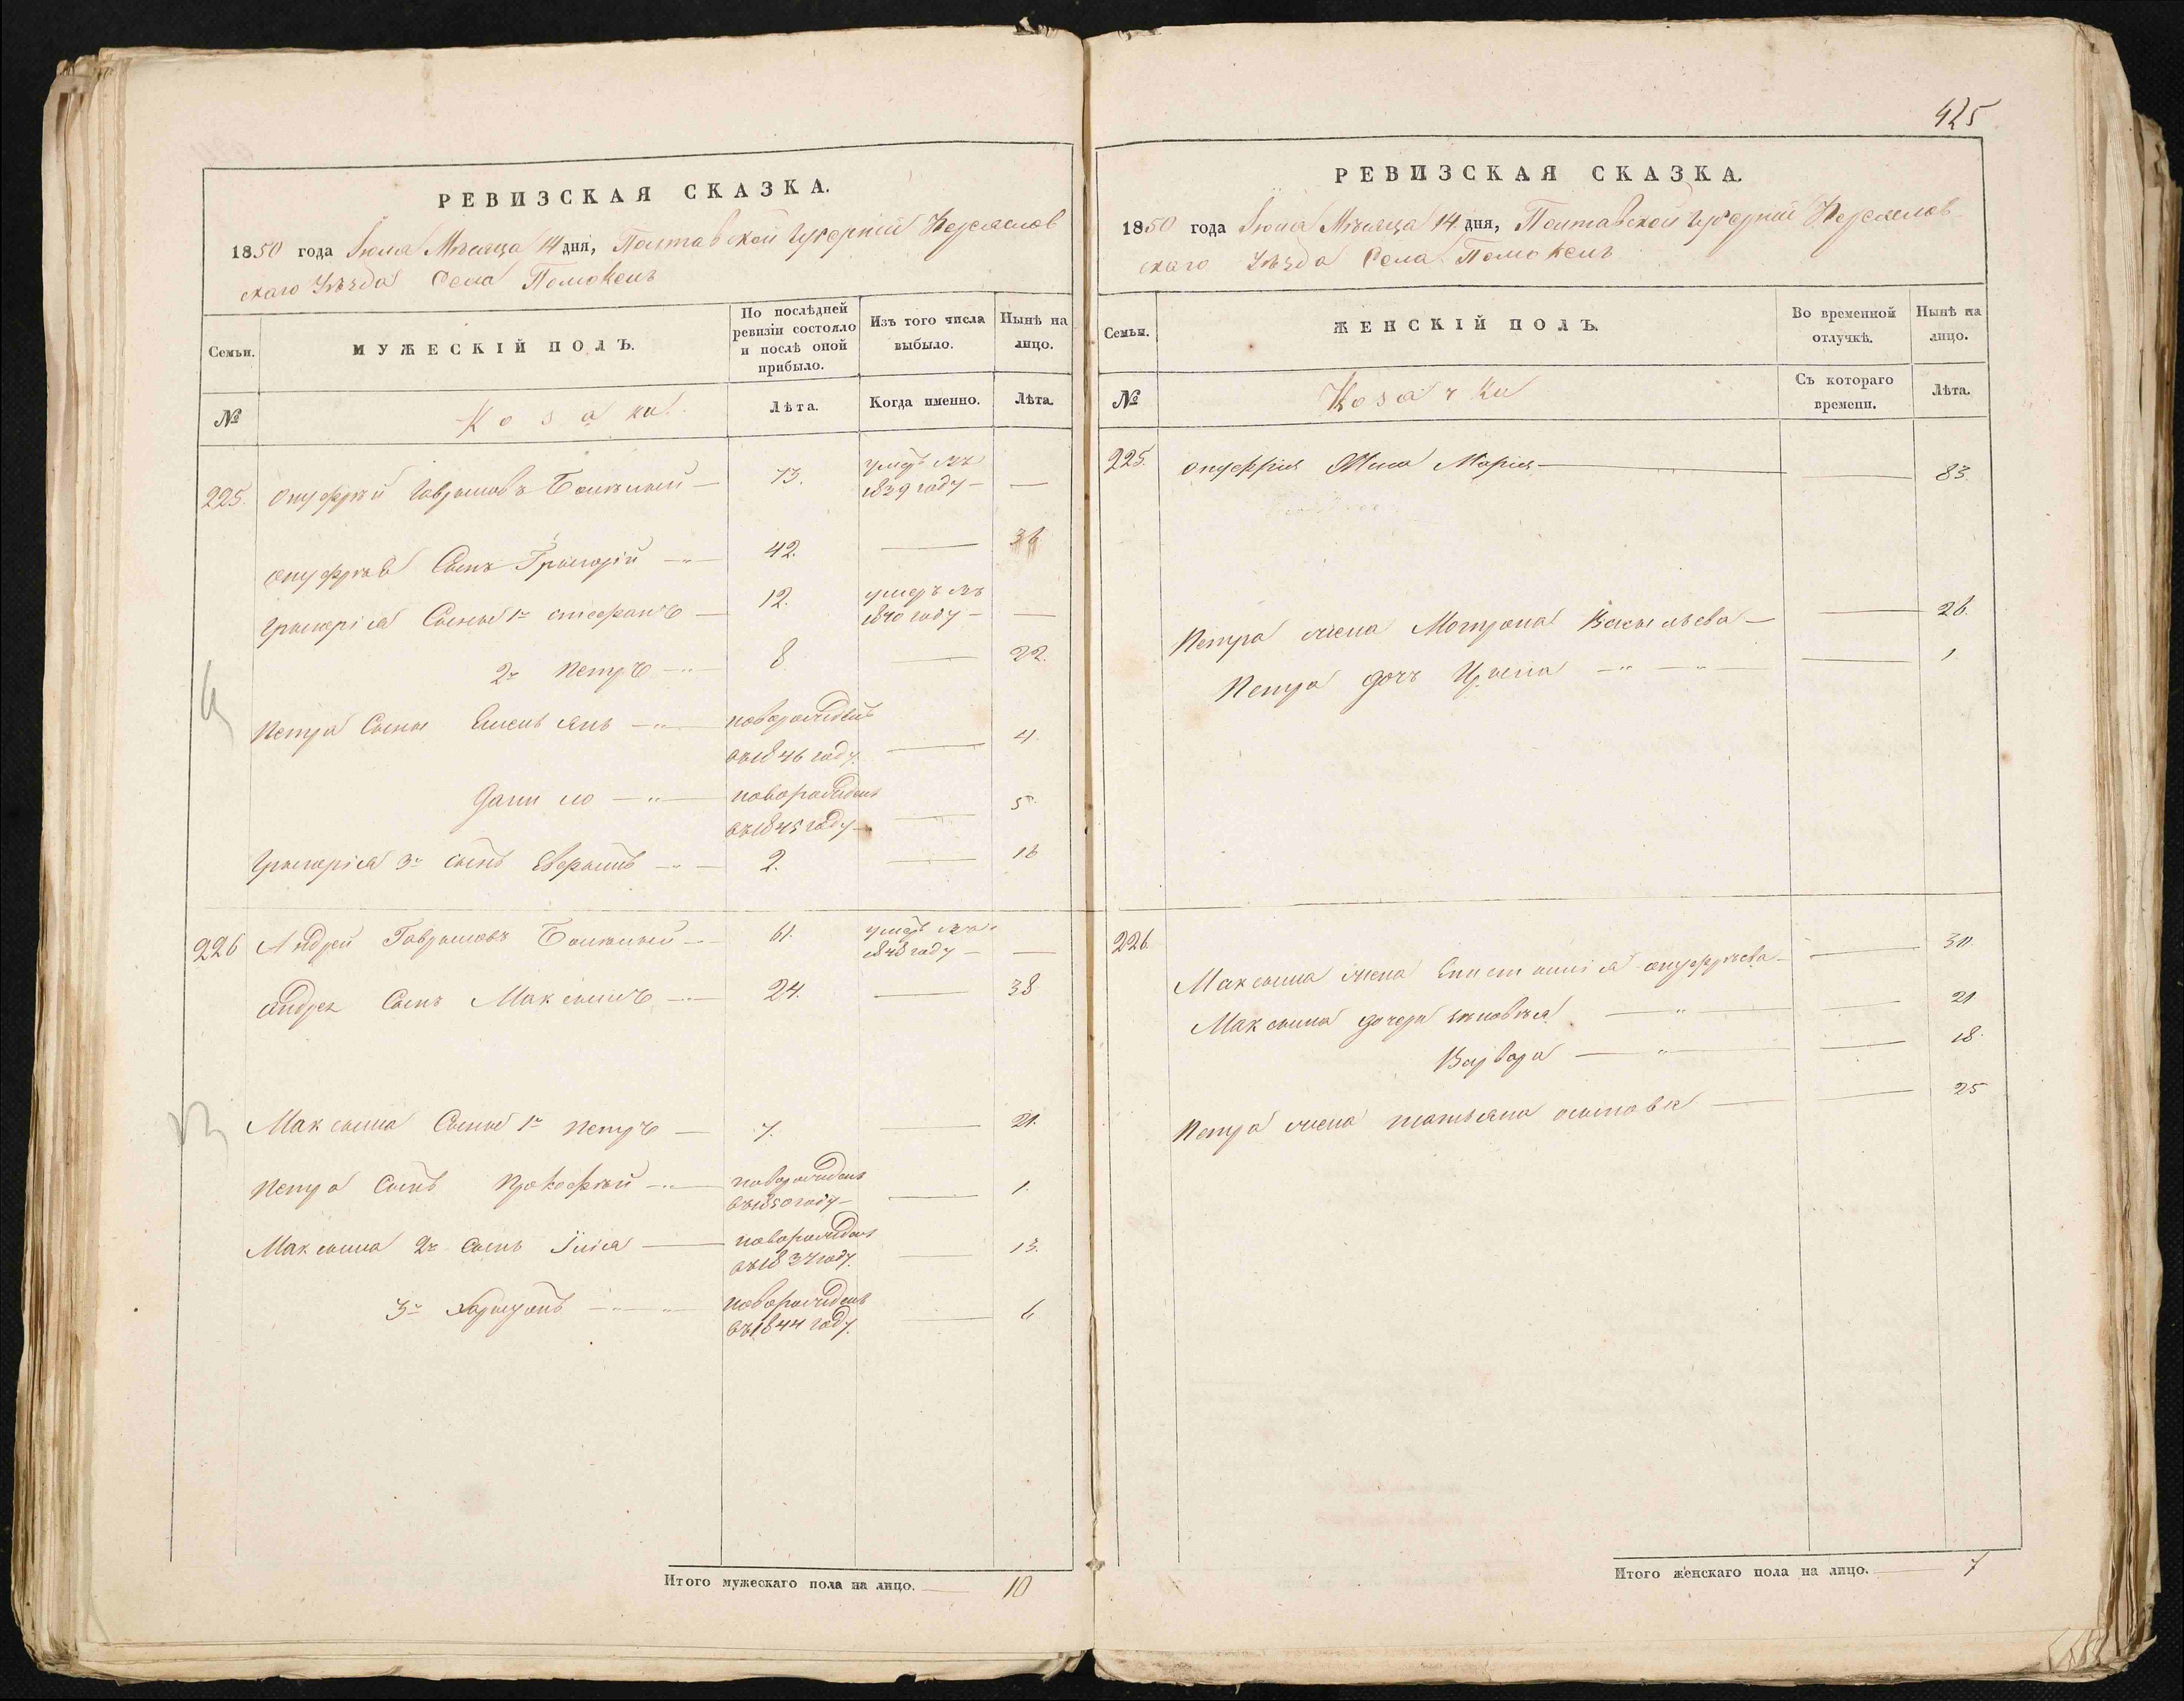 425
РЕВИЗСКАЯ СКАЗКА.
1850 года Июля Мѣсяца 14 дня, Полтавской Губерніи Переяслов
скаго Уѣзда Села Помоклей
Семьи.
МУЖЕСКІЙ ПОЛЪ.
По послѣдней ревизіи состояло и послѣ оной прибыло.
Изъ того числа выбыло.
Нынѣ на лицо.
№
Козаки
Лѣта.
Когда именно.
Лѣта.
225. Онуфрій Гавриловъ 73. умеръ въ
1839 году —
Онуфрія Сынъ Григорій 42. —
Григорія Сыны 1й Стефанъ — 12. умеръ въ
1840 году —
2й Петръ 8 — 22.
Петра Сыны Емельянъ новорожденъ
въ 1846 году. — 4.
Данило новорожденъ
въ 1845 году — 5.
Григорія 3й сынъ 2. — 16
226 Андрей Гавриловъ 61. умеръ въ
1848 году —
Андрея Сынъ Максимъ 24. — 38
Максима Сыны 1й Петръ — 7. — 21.
Петра Сынъ Прокофій новорожденъ
въ 1850 году — 1.
Максима 2й Сынъ Илія — новорожденъ
въ 1837 году. — 13.
3й Харитонъ новорожденъ
въ 1844 году. — 6
Итого мужескаго пола на лицо. 10
РЕВИЗСКАЯ СКАЗКА.
1850 года Июля Мѣсяца 14 дня, Полтавской Губерніи Переяслов
скаго Уѣзда Села Помоклей
Семьи.
ЖЕНСКІЙ ПОЛЪ.
Во временной отлучкѣ.
Нынѣ на лицо.
№
Козачки
Съ котораго времени.
Лѣта.
225. Онуфрія Жена Марія — 83.
Петра жена Мотрона Васильева — 26.
Петра дочь Ирина — 1
226.
Максима жена Онуфріева —
Максима дочери Зѣновія — 21
Варвара — 18.
Петра жена Татьяна Осипова — 25
Итого женскаго пола на лицо. 7